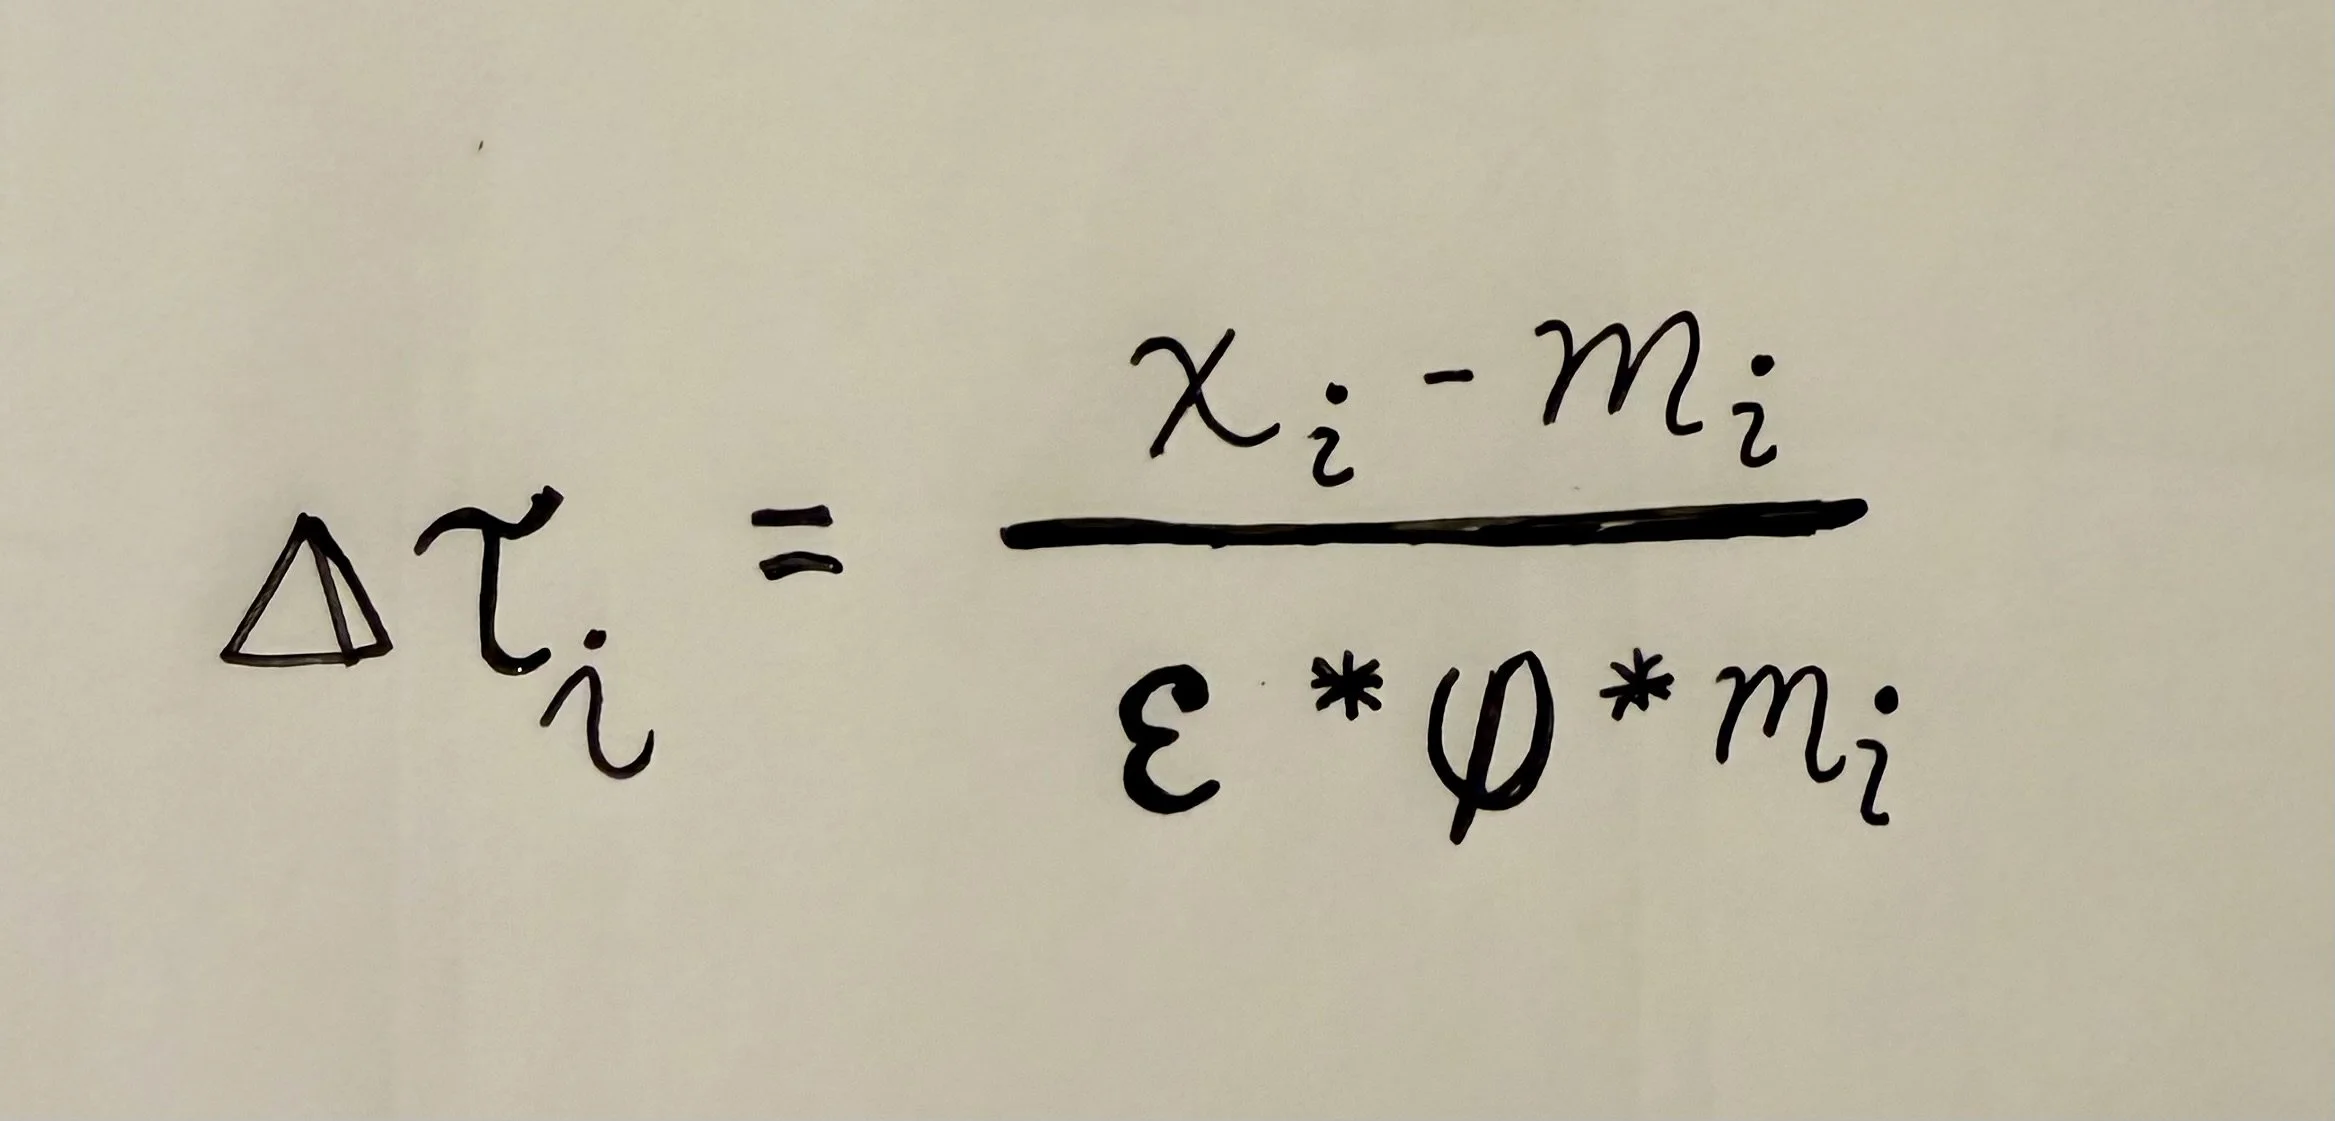 Δτᵢ = (xᵢ - mᵢ) / (ε * φ * mᵢ)